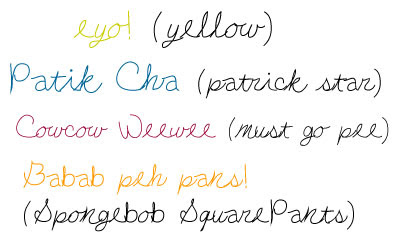 eyo! (yellow)
Patik Cha (patrick star)
Cowcow Weewee (must go pee)
Babab peh pans!
(Spongebob SquarePants)